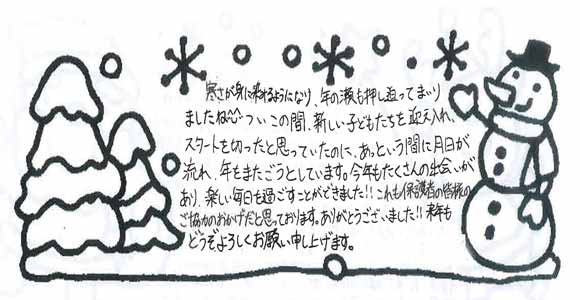 寒さが身に染みるようになり、年の瀬も押し迫ってまいり
ましたね^^ つい この間、新しい子どもたちを迎え入れ、
スタートを切ったと思っていたのに、あっという間に月日が
流れ、年をまたごうとしています。今年もたくさんの出会いが
あり、楽しい毎日を過ごすことができました!! これも保護者の皆様の
ご協力のおかげだと思っております。ありがとうございました!! 来年も
どうぞよろしくお願い申し上げます。